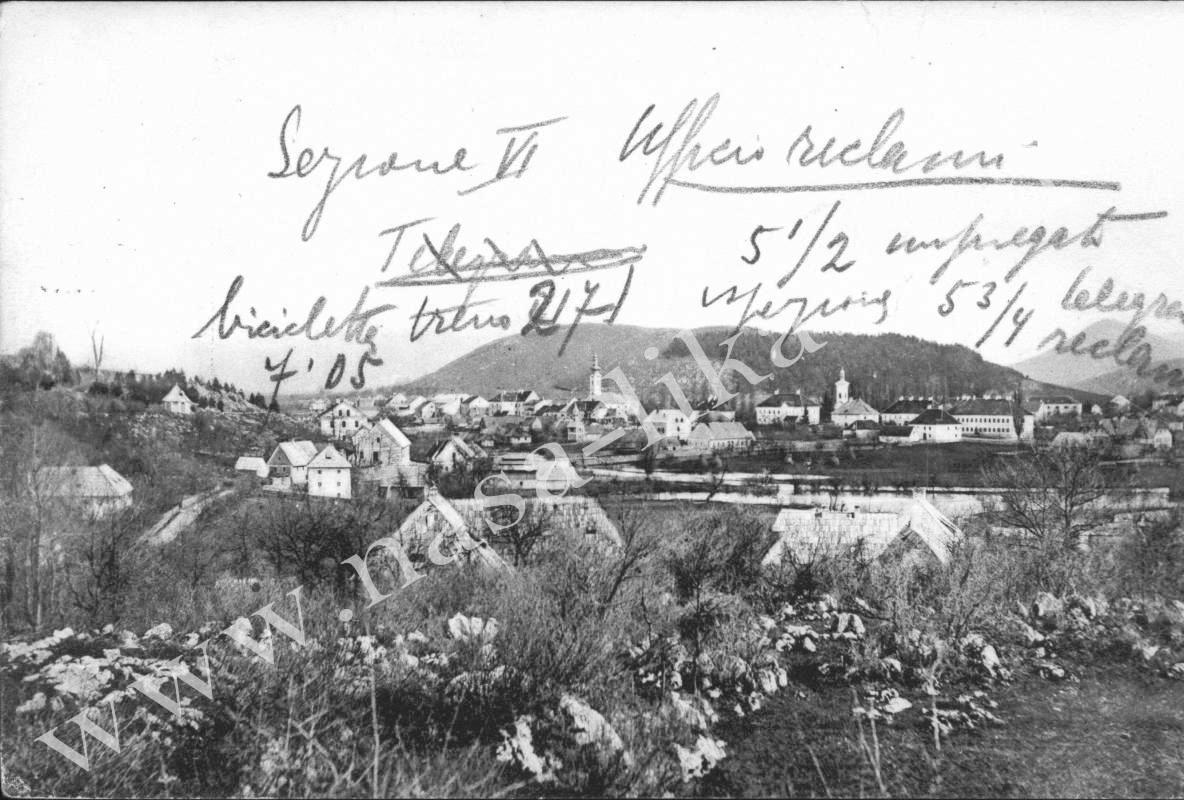 Sezione VI Ufficio reclami
Telegra
5 1/2 impiegato
bicicletta treno 2171
sezione 53/4
7'05
reclami
www.nasa-lika